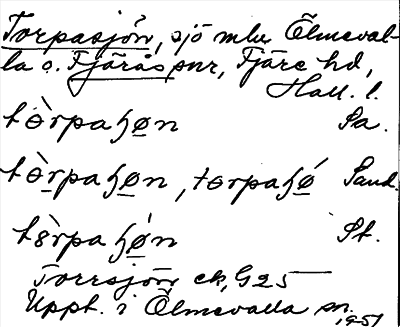 Torpasjön, sjö mln Ölmeval-
la o. Fjärås snr, Fjäre hd,
Hall. l.
tòrpaɧøn Sa.
tòrpaɧøn, torpaɧǿ Sand.
tòrpaɧǿn St.
Torrsjön ek. G 25
Uppt. i Ölmevalla sn. 1951